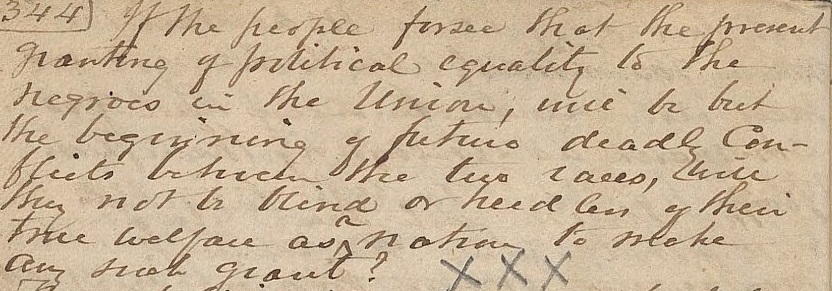 344] If the people forsee that the present
granting of political equality to the
negroes in the Union, will be but
the beginning of future deadly Con-
flicts between the two races, will
they not be blind or heedless of their
true welfare as a nation to make
any such grant?
XXX